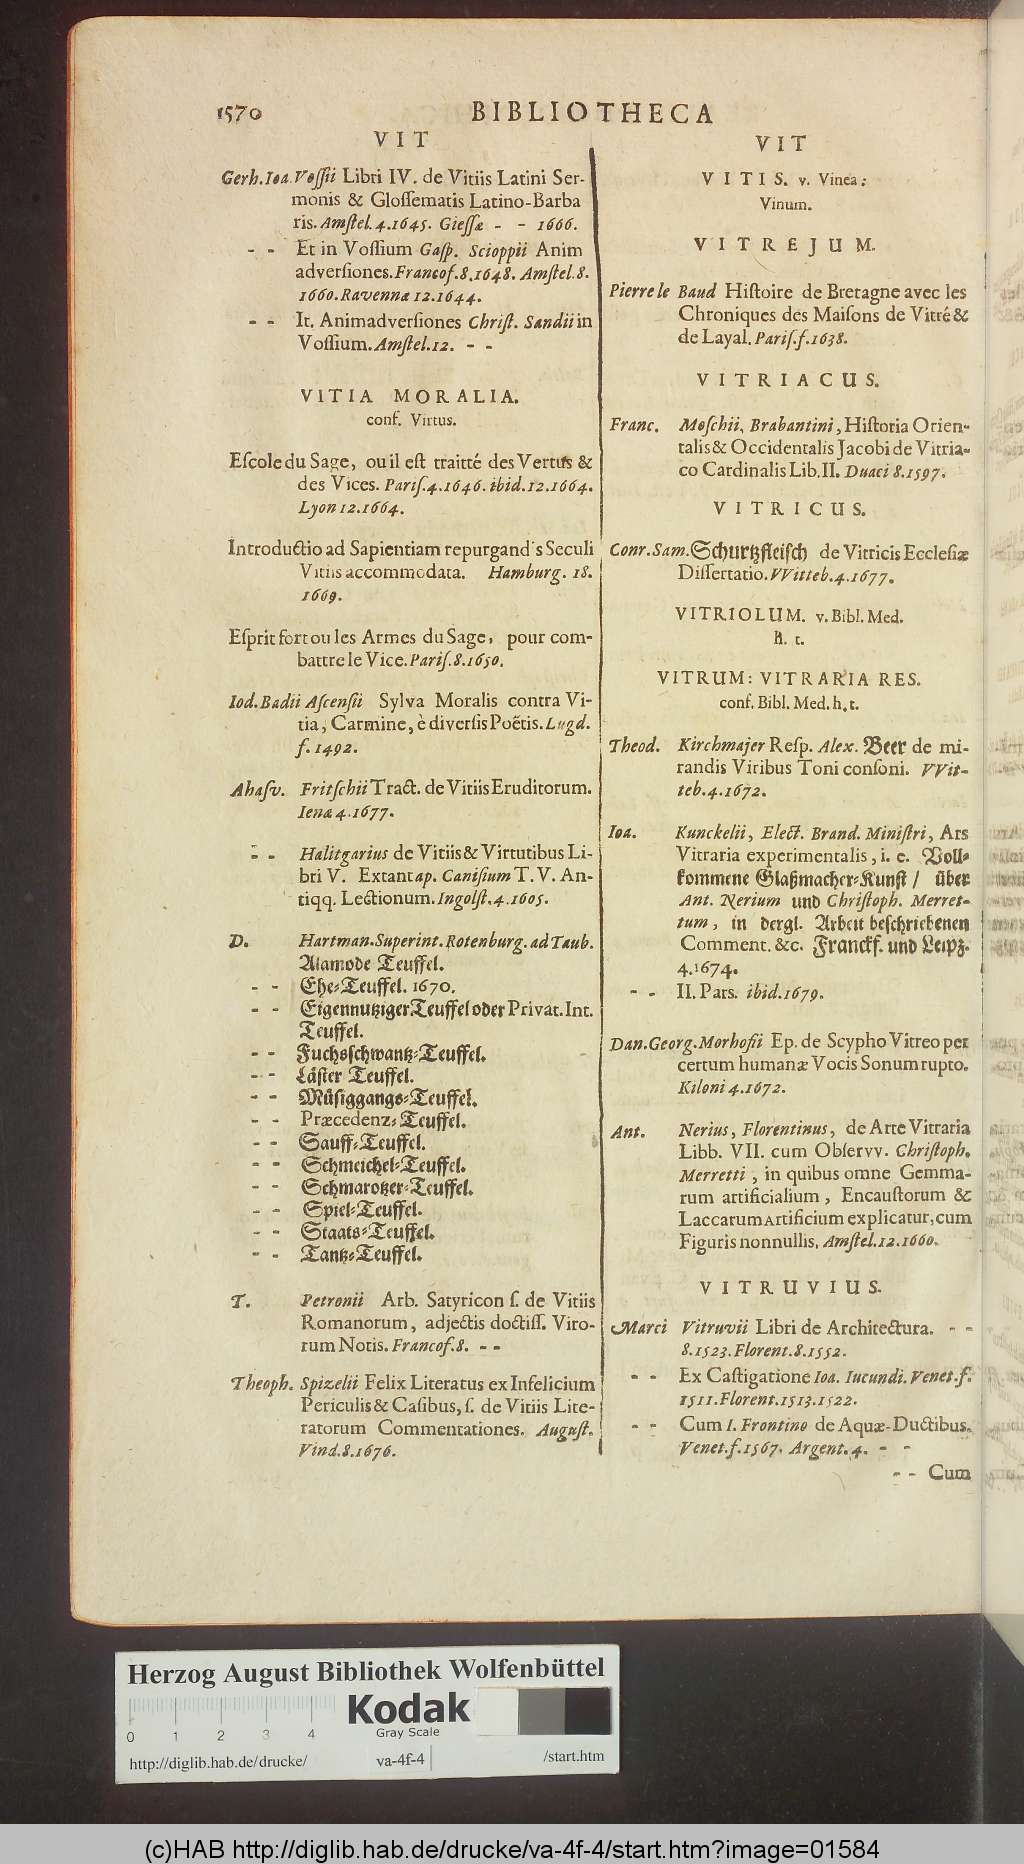 1570 BIBLIOTHECA
VIT
Gerh. Ioa. Vossii Libri IV. de Vitiis Latini Ser-
monis & Glossematis Latino-Barba
ris. Amstel. 4. 1645. Giessæ - - 1666.
- - Et in Vossium Gasp. Scioppii Anim
adversiones. Francof. 8. 1648. Amstel. 8.
1660. Ravennæ 12. 1644.
- - It. Animadversiones Christ. Sandii in
Vossium. Amstel. 12. - -
VITIA MORALIA.
conf. Virtus.
Escole du Sage, ou il est traitté des Vertus &
des Vices. Paris. 4. 1646. ibid. 12. 1664.
Lyon 12. 1664.
Introductio ad Sapientiam repurgandis Seculi
Vitiis accommodata. Hamburg. 18.
1669.
Esprit fort ou les Armes du Sage, pour com-
battre le Vice. Paris. 8. 1650.
Iod. Badii Ascensii Sylva Moralis contra Vi-
tia, Carmine, è diversis Poëtis. Lugd.
f. 1492.
Ahasv. Fritschii Tract. de Vitiis Eruditorum.
Ienæ 4. 1677.
- - Halitgarius de Vitiis & Virtutibus Li-
bri V. Extant ap. Canisium T. V. An-
tiqq. Lectionum. Ingolst. 4. 1605.
D. Hartman. Superint. Rotenburg. ad Taub.
Alamode Teuffel.
- - Ehe-Teuffel. 1670.
- - Eigennutziger Teuffel oder Privat. Int.
Teuffel.
- - Fuchsschwantz-Teuffel.
- - Läster Teuffel.
- - Müsiggangs-Teuffel.
- - Præcedenz-Teuffel.
- - Sauff-Teuffel.
- - Schmeichel-Teuffel.
- - Schmarotzer-Teuffel.
- - Spiel-Teuffel.
- - Staats-Teuffel.
- - Tantz-Teuffel.
T. Petronii Arb. Satyricon s. de Vitiis
Romanorum, adjectis doctiss. Viro-
rum Notis. Francof. 8. - -
Theoph. Spizelii Felix Literatus ex Infelicium
Periculis & Casibus, s. de Vitiis Lite-
ratorum Commentationes. August.
Vind. 8. 1676.
VIT
VITIS. v. Vinea:
Vinum.
VITREJUM.
Pierre le Baud Histoire de Bretagne avec les
Chroniques des Maisons de Vitré &
de Layal. Paris. f. 1638.
VITRIACUS.
Franc. Moschii, Brabantini, Historia Orien-
talis & Occidentalis Jacobi de Vitria-
co Cardinalis Lib. II. Duaci 8. 1597.
VITRICUS.
Conr. Sam. Schurtzfleisch de Vitricis Ecclesiæ
Dissertatio. VVitteb. 4. 1677.
VITRIOLUM. v. Bibl. Med.
h. t.
VITRUM: VITRARIA RES.
conf. Bibl. Med. h. t.
Theod. Kirchmajer Resp. Alex. Beer de mi-
randis Viribus Toni consoni. VVit-
teb. 4. 1672.
Ioa. Kunckelii, Elect. Brand. Ministri, Ars
Vitraria experimentalis, i. e. Voll-
kommene Glaßmacher-Kunst / über
Ant. Nerium und Christoph. Merret-
tum, in dergl. Arbeit beschriebenen
Comment. &c. Franckf. und Leipz.
4. 1674.
- - II. Pars. ibid. 1679.
Dan. Georg. Morhofii Ep. de Scypho Vitreo per
certum humanæ Vocis Sonum rupto.
Kiloni 4. 1672.
Ant. Nerius, Florentinus, de Arte Vitraria
Libb. VII. cum Observv. Christoph.
Merretti, in quibus omne Gemma-
rum artificialium, Encaustorum &
Laccarum Artificium explicatur, cum
Figuris nonnullis. Amstel. 12. 1660.
VITRUVIUS.
Marci Vitruvii Libri de Architectura. - -
8. 1523. Florent. 8. 1552.
- - Ex Castigatione Ioa. Iucundi. Venet. f.
1511. Florent. 1513. 1522.
- - Cum I. Frontino de Aquæ-Ductibus.
Venet. f. 1567. Argent. 4. - -
- - Cum
Herzog August Bibliothek Wolfenbüttel
Kodak
Gray Scale
0 1 2 3 4
http://diglib.hab.de/drucke/ va-4f-4 /start.htm
(c)HAB http://diglib.hab.de/drucke/va-4f-4/start.htm?image=01584